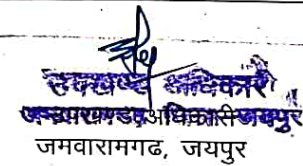 उपखण्ड अधिकारी
उपखण्ड अधिकारी जयपुर
जमवारामगढ, जयपुर